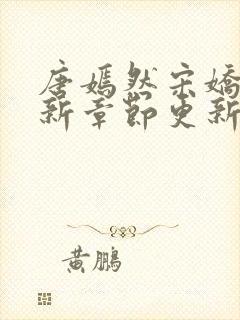 唐嫣然宋嬌
新章節更新
黃鵬